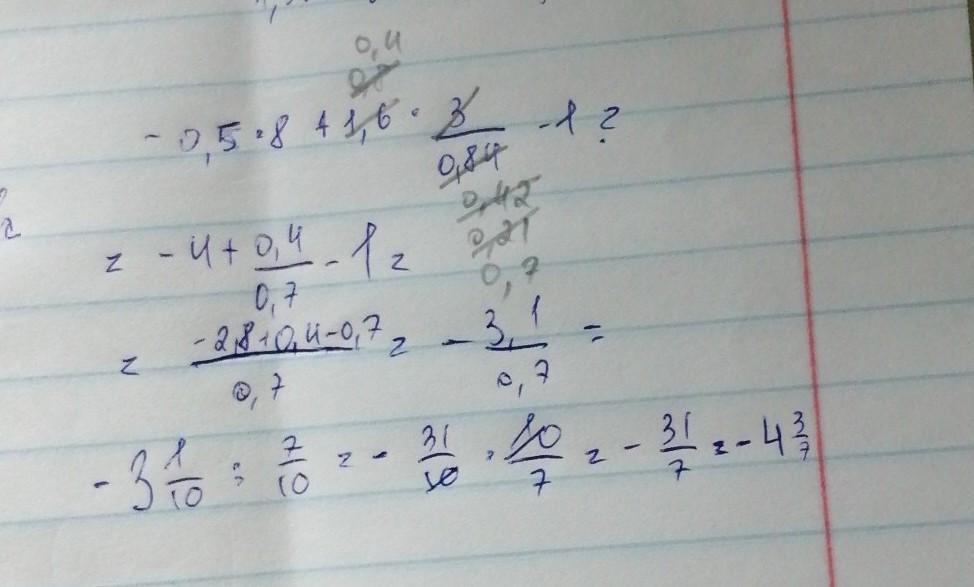 0,4
0,8
- 0,5 · 8 + 1,6 · 3/0,84 - 1 =
0,42
0,21
0,7
= - 4 + 0,4/0,7 - 1 =
= -2,8+0,4-0,7/0,7 = - 3,1/0,7 =
- 3 1/10 : 7/10 = - 31/10 · 10/7 = - 31/7 = - 4 3/7